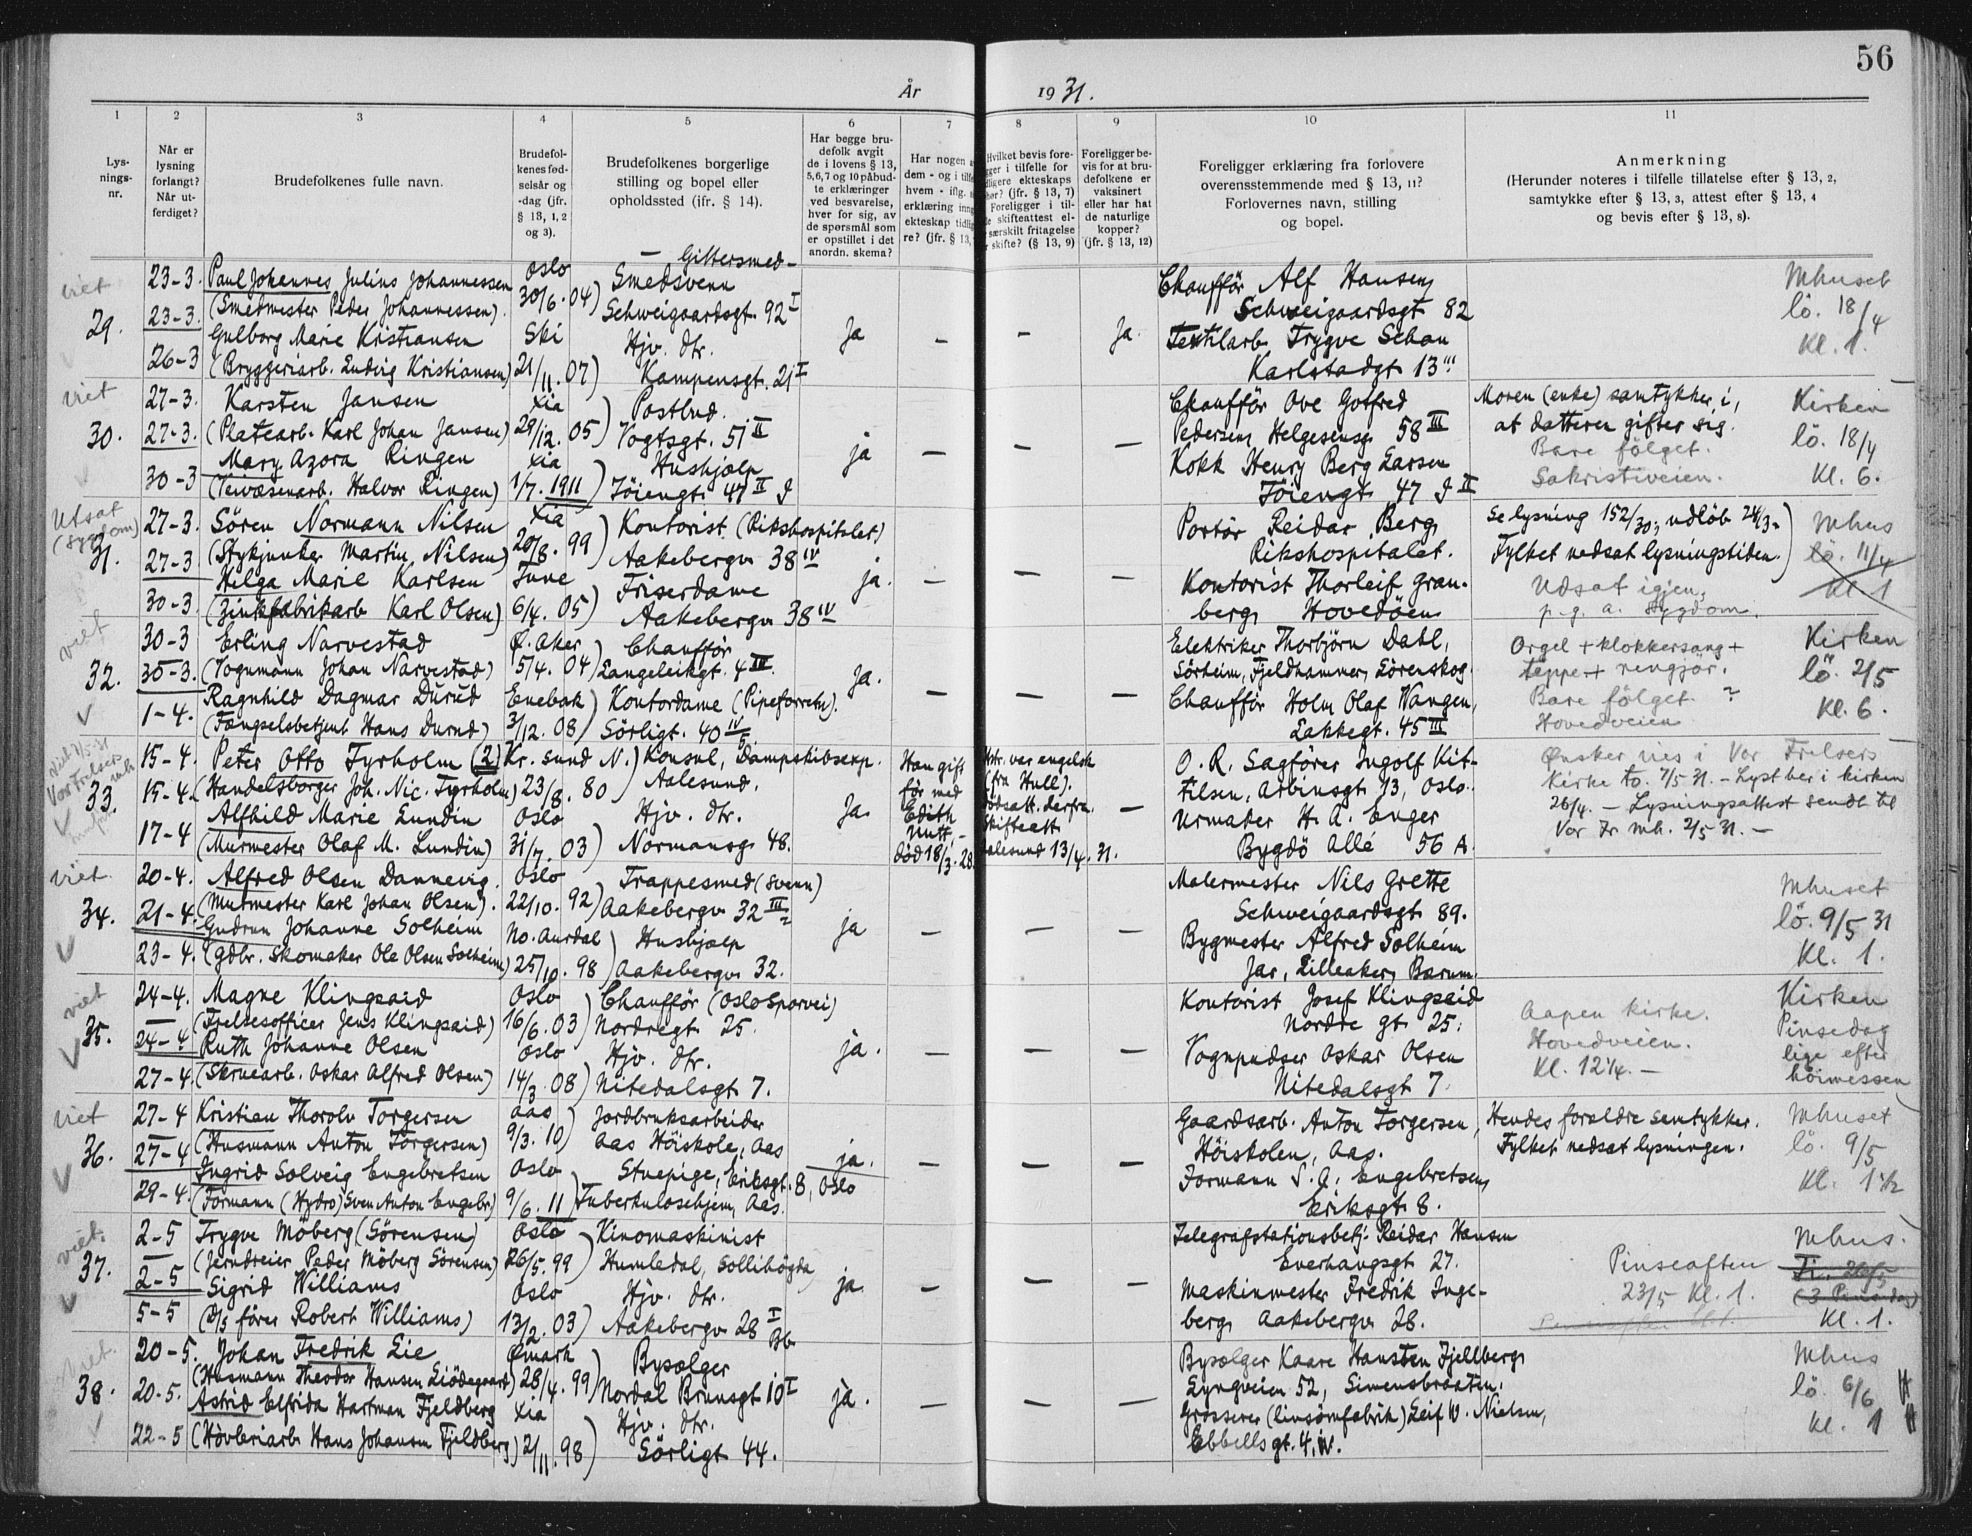 56
År 1931.
1 2 3 4 5 6 7 8 9 10 11
Lys-
nings-
nr.
Når er
lysning
forlangt?
Når ut-
ferdiget?
Brudefolkenes fulle navn.
Brudefol-
kenes fød-
selsår og
-dag (jfr.
§ 13, 1, 2
og 3).
Brudefolkenes borgerlige
stilling og bopel eller
opholdssted (ifr. § 14).
Har begge bru-
defolk avgit
de i lovens § 13,
5,6,7 og 10 påbud-
te erklæringer
ved besvarelse,
hver for sig, av
de spørsmål som
er opstillet i det
anordn. skema?
Har nogen a
dem - og i tilfe
hvem - iflg.
erklæring inng
ekteskap tidlig
re? (jfr. § 13,
Hvilket bevis fore-
gger i tilfelle for
dligere ekteskaps
hør? (jfr. § 13, 7)
Foreligger i til-
de skifteattest el-
særskilt fritagelse
r skifte? (§ 13, 9)
Foreligger be-
vis for at bru-
defolkene er
vaksinert
eller har hat
de naturlige
kopper?
(jfr. § 13, 12)
Foreligger erklæring fra forlovere
overensstemmende med § 13, 11?
Forlovernes navn, stilling
og bopel.
Anmerkning
(Herunder noteres i tilfelle tillatelse efter § 13, 2,
samtykke efter § 13, 3, attest efter § 13, 4
og bevis efter § 13, 8).
viet
29.
23-3.
23-3.
26-3
Paul Johannes Julius Johannessen
(Smedmester Peder Johannessen).
Gulborg Marie Kristiansen
(Bryggeriarb. Ludvig Kristiansen)
Oslo
30/6. 04)
Ski
21/11. 07)
— Gittersmed-
Smedsvenn
Schweigaardsgt. 92 I
Hjv. dtr.
Kampensgt. 21 I
Ja
—
—
Ja.
Chaufför Alf Hansen,
Schweigaardsgt 82
Textilarb. Trygve Schau
Karlstadgt 13 III
Mhuset
lö. 18/4
Kl. 1.
viet
30.
27-3.
27-3.
30-3
Karsten Jansen
(Platearb. Karl Johan Jansen)
Mary Azora Ringen
(Veivæsenarb. Halvor Ringen)
Xia
29/12. 05)
Xia
1/7. 1911)
Postbud.
Vogtsgt. 51 II
Hushjælp
Töiengt. 47 II I
ja
—
—
—
Chaufför Ove Gotfred
Pedersen, Helgesensg 58 III
Kokk Henry Berg Larsen
Töiengt 47 I II
Moren (enke) samtykker i,
at datteren gifter sig.
Bare fölget.
Sakristiveien.
Kirken
lö. 18/4
Kl. 6.
Utsat
(sygdom)
31.
27-3.
27-3
30-3
Sören Normann Nilsen
(Stykjunker Martin Nilsen)
Helga Marie Karlsen
(Zinkfabrikarb Karl Olsen)
Xia
20/8. 99)
Tune
6/4. 05)
Kontorist (Rikshospitalet)
Aakebergv 38 IV
Friserdame
Aakebergv 38 IV
ja.
—
—
—
Portör Reidar Berg,
Rikshospitalet.
Kontorist Thorleif Gran-
berg, Hovedöen
Se lysning 152/30, udlöb 24/3.
Fylket nedsat lysningstiden.
Udsat igjen,
p. g. a. sygdom.
Mhus
lö. 11/4
Kl. 1
viet
32.
30-3
30-3.
1-4.
Erling Narvestad
(Vognmann Johan Narvestad)
Ragnhild Dagmar Durud
(Fængselsbetjent Hans Durud)
Ö. Aker
5/4. 04)
Enebak
3/12. 08)
Chaufför
Langeleikgt. 4 III.
Kontordame (Pipeforretn).
Sörligt. 40 IV
Ja.
—
—
—
Elektriker Thorbjörn Dahl,
Sörheim, Fjeldhammer, Lörenskog.
Chaufför Holm Olaf Wangen,
Lakkegt. 45 III
Orgel + klokkersang +
teppe + rengjör.
Bare fölget. ?
Hovedveien
Kirken
lö. 2/5
Kl. 6.
Viet 7/5. 31
Vor Frelsers
33.
15-4.
15-4.
17-4
Peter Otto Tyrholm (2)
(Handelsborger Joh. Nic. Tyrholm)
Alfhild Marie Lundin
(Murmester Olaf M. Lundin)
Kr. sund N.)
23/8. 80
Oslo
31/7. 03)
Konsul, Dampskibsexp.
Aalesund.
Hjv. dtr.
Normansg 48.
Ja
Han gift
för med
Edith
Nutt,
död 18/3. 28
Hstr. var engelsk
(fra Hull).
Dödsatt. derfra.
Skifteatt
Aalesund 13/4. 31.
—
O. R. Sagförer Ingolf Kit-
tilsen, Arbinsgt 13, Oslo.
Urmaker H. A. Enger
Bygdö Allé 56 A.
Ønsker vies i Vor Frelsers
Kirke to. 7/5 31. - Lyst her i kirken
26/4. - Lysningsattest sendt til
Vor Fr. mh. 2/5 31. -
viet
34.
20-4.
21-4.
23-4.
Alfred Olsen Dannevig.
(Murmester Karl Johan Olsen).
Gudrun Johanne Solheim
(gdbr. Skomaker Ole Olsen Solheim)
Oslo
22/10. 92)
No. Aurdal
25/10. 98)
Trappesmed (svenn)
Aakebergv 32 III
Hushjælp
Aakebergv 32.
ja
—
—
—
Malermester Nils Grette
Schweigaardsgt 89.
Bygmester Alfred Solheim
Jar, Lilleaker, Bærum.
Mhuset
lö. 9/5 31
Kl. 1.
viet
35.
24-4.
24-4
27-4.
Magne Klingsaid
(Frelsesofficer Jens Klingsaid)
Ruth Johanne Olsen
(Skruearb. Oskar Alfred Olsen)
Oslo
16/6. 03)
Oslo
14/3. 08)
Chaufför (Oslo Sporvei)
Nordregt 25.
Hjv. dtr.
Nitedalsgt 7.
ja.
—
—
—
Kontorist Josef Klingsaid
Nordre gt 25.
Vognpudser Oskar Olsen
Nitedalsgt 7.
Aapen kirke.
Hovedveien.
Kl. 12 1/4. -
Kirken
Pinsedag
lige efter
höimessen
viet
36.
27-4
27-4
29-4.
Kristian Thorolv Torgersen
(Husmann Anton Torgersen)
Ingrid Solveig Engebretsen
(Formann (Hydro) Sven Anton Engebr)
Aas
9/3. 10)
Oslo
9/6. 11)
Jordbruksarbeider
Aas Höiskole, Aas
Stuepige, Eriksgt. 8, Oslo
Tuberkulosehjem, Aas.
ja.
—
—
—
Gaardsarb. Anton Torgersen,
Höiskolen, Aas.
Formann S. A. Engebretsen,
Eriksgt 8.
Hendes foreldre samtykker.
Fylket nedsat lysningen.
Mhuset
lö. 9/5
Kl. 1 1/2
viet.
37.
2-5
2-5
5-5
Trygve Möberg (Sörensen)
(Jerndreier Peder Möberg Sörensen)
Sigrid Williams
(D/S förer Robert Williams)
Oslo
26/5. 99)
Oslo
13/2. 03)
Kinomaskinist
Humledal, Sollihögda
Hjv. dtr.
Aakebergv 28 I
Bb
ja
—
—
—
Telegrafstationsbetj. Reidar Hansen
Enerhaugsgt 27.
Maskinmester Fredrik Inge-
berg, Aakebergv 28.
Pinseaften
23/5 Kl. 1.
Mhus.
Kl. 1.
Viet.
38.
20-5.
20-5.
22-5
Johan Fredrik Lie
(Husmann Theodor Hansen Liödegaard)
Astrid Elfrida Hartman Fjeldberg
(Hövleriarb Hans Johansen Fjeldberg)
Ømark
28/4. 99)
Xia
2/11. 98)
Bysælger
Nordal Brunsgt 10 I
Hjv. dtr.
Sörligt 44.
ja.
—
—
—
Bysælger Kaare Hansten Fjellberg,
Lyngveien 52, Simensbraaten.
Grosserer (linsömfabrik) Leif W. Nielsen,
Ebbellsgt. 4, IV.
Mhus
lö. 6/6
Kl. 1